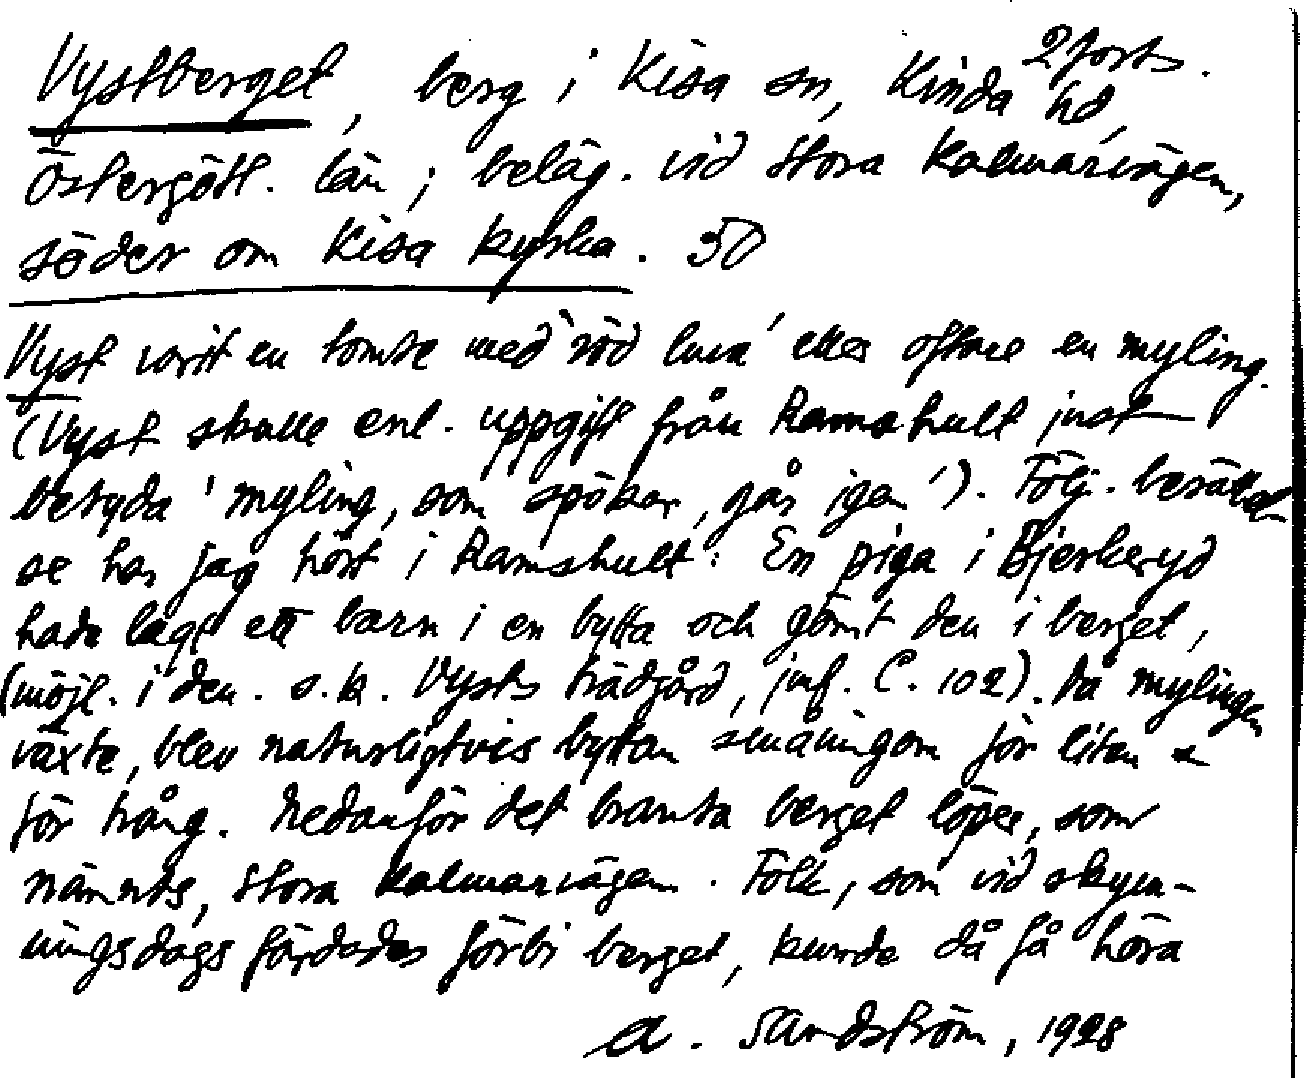 2 forts.
Vystberget, berg i Kisa sn, Kinda hd,
Östergötl. län; beläg. vid stora Kalmarvägen,
söder om Kisa kyrka. 50
Vyst varit en tomte med 'röd luva' eller oftare en myling.
(Vyst skulle enl. uppgift från Ramshult just
betyda 'myling, som spökar, går igen'). Följ. berättel-
se har jag hört i Ramshult: En piga i Bjerkeryd
hade lagt ett barn i en bytta och gömt den i berget,
(möjl. i den s.k. Vysts trädgård, jmf. C. 102). Då mylingen
växte, blev naturligtvis byttan småningom för liten o
för trång. Nedanför det branta berget löper, som
nämnts, stora Kalmarvägen. Folk, som vid skym-
ningsdags färdades förbi berget, kunde då få höra
A. Sandström, 1928